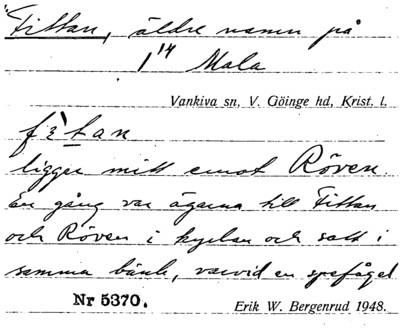 "Fittan, äldre namn på
1¹⁴ Mala
Vankiva sn, V. Göinge hd, Krist. l.
fi`tan
ligger mitt emot Röven.
En gång var ägarna till Fittan
och Röven i kyrkan och satt i
samma bänk, varvid en spefågel
Nr 5370. Erik W. Bergenrud 1948.